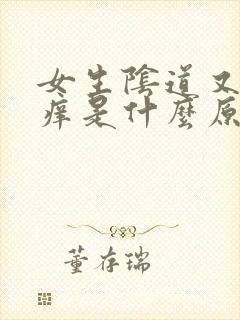 女生陰道又
痒是什麼原
董存瑞